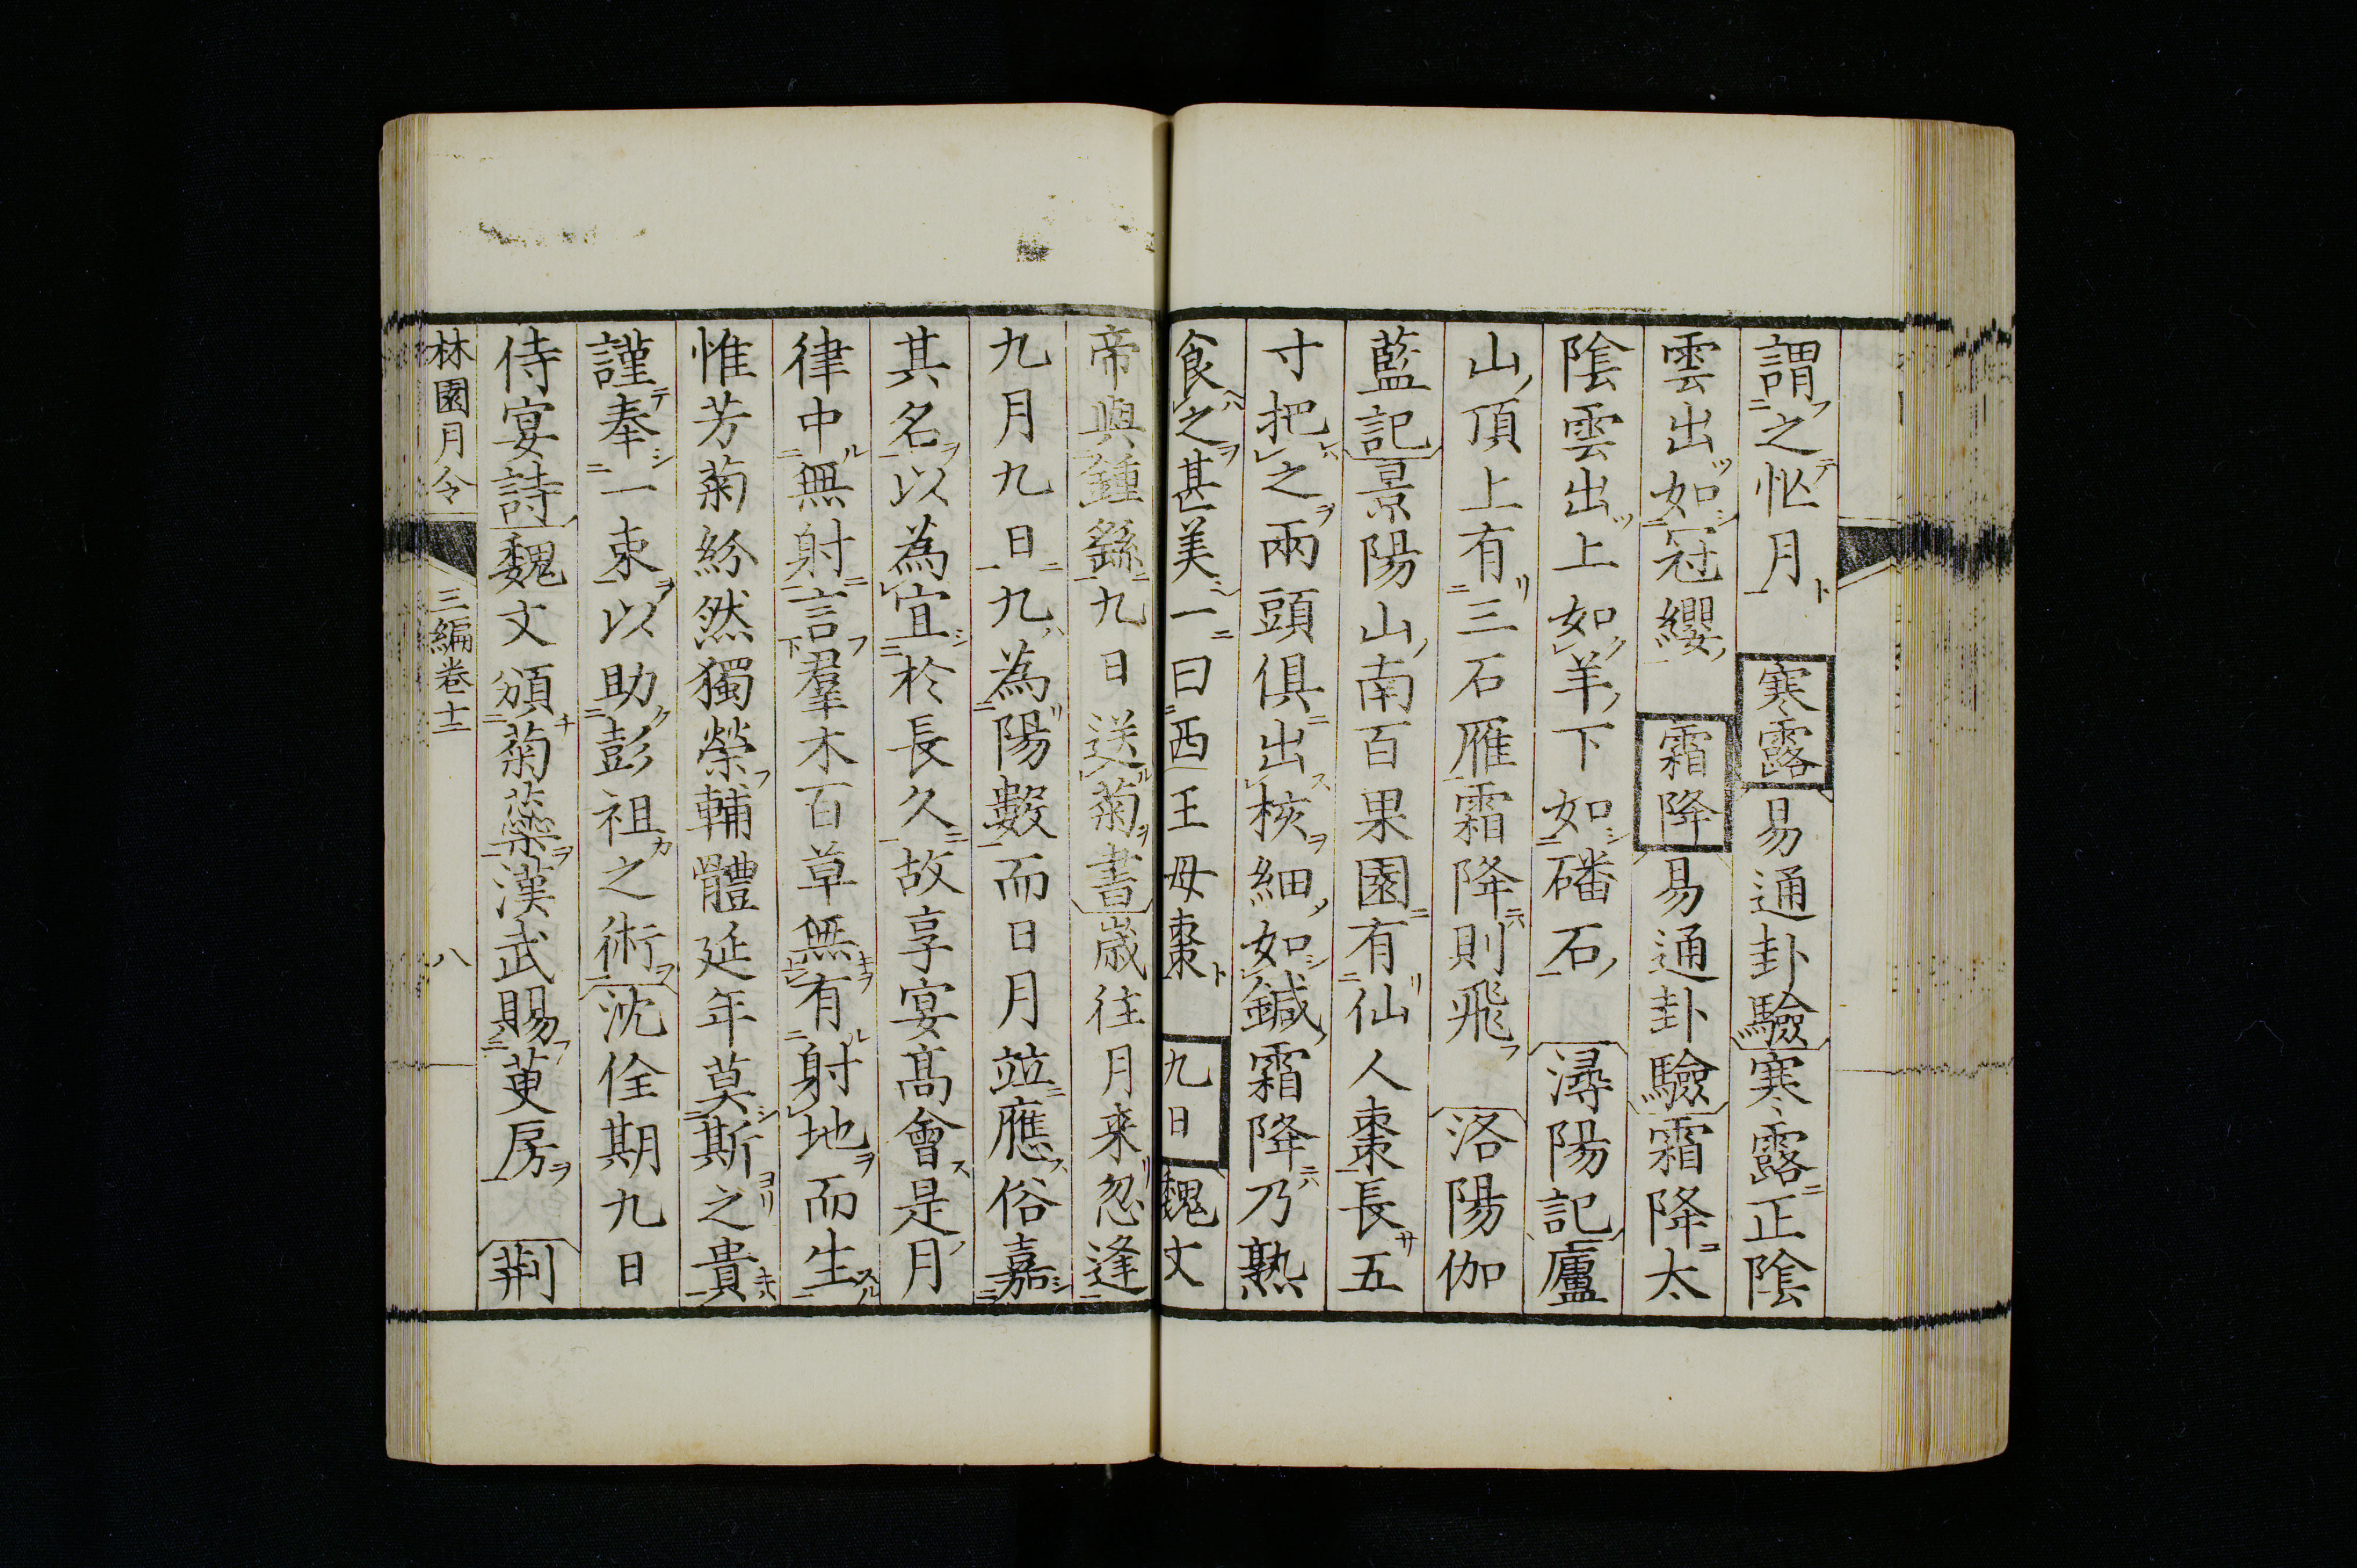 謂之㤀月　寒露　易通卦驗寒露正陰
雲出如冠纓　霜降　易通卦驗霜降太
陰雲出上如羊下如磻石　潯陽記廬
山頂上有三石雁霜降則飛　洛陽伽
藍記景陽山南百果園有仙人棗長五
寸把之兩頭俱出核細如鍼霜降乃熟
食之甚美一曰西王母棗　九日　魏文
帝與鍾繇九日送菊書歲往月來忽逢
九月九日九為陽數而日月竝應俗嘉
其名以為宜於長久故享宴高會是月
律中無射言羣木百草無有射地而生
惟芳菊紛然獨榮輔體延年莫斯之貴
謹奉一束以助彭祖之術　沈佺期九日
侍宴詩魏文頒菊蘂漢武賜萸房　荆
林園月令　三編卷十二　八